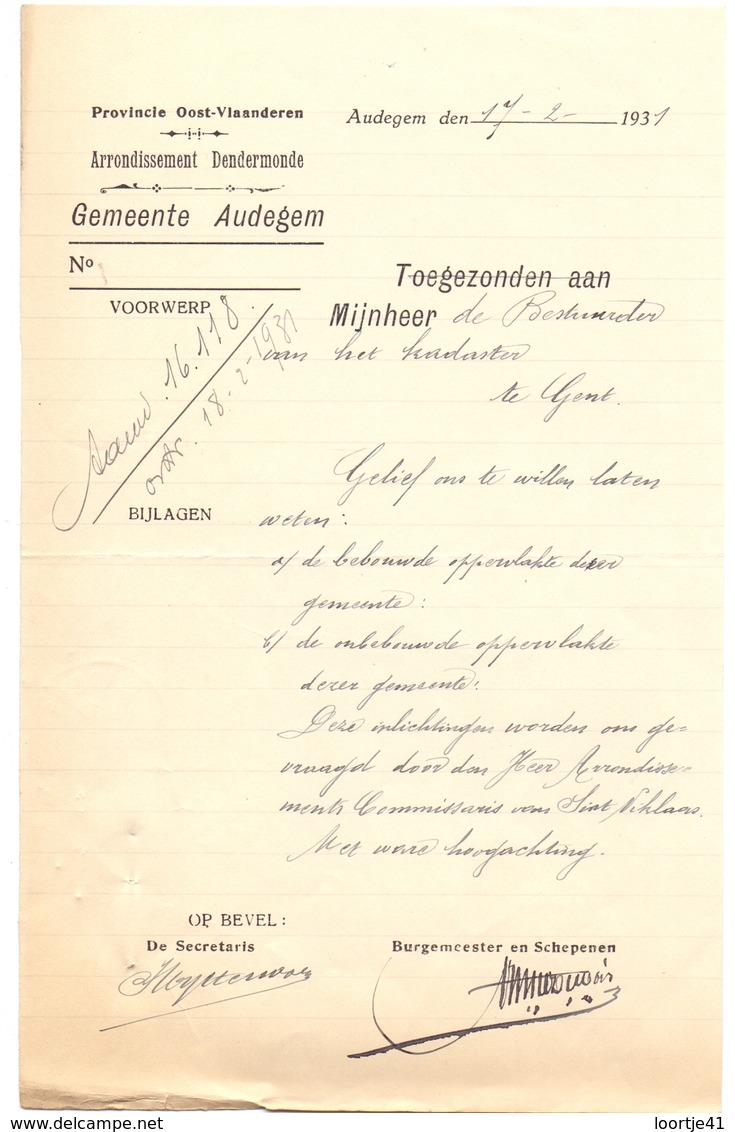 Provincie Oost-Vlaanderen
Arrondissement Dendermonde
Gemeente Audegem
No
VOORWERP
16.118.
18-2-1931
BIJLAGEN
Audegem den 17-2- 1931
Toegezonden aan
Mijnheer de Bestuurder
van het kadaster
te Gent.
Gelief ons te willen laten
weten:
a/ de bebouwde oppervlakte dezer
gemeente:
b/ de onbebouwde oppervlakte
dezer gemeente:
Deze inlichtingen worden ons ge-
vraagd door den Heer Arrondisse-
ments Commissaris van Sint Niklaas.
Met ware hoogachting.
OP BEVEL:
De Secretaris
Burgemeester en Schepenen
loortje41